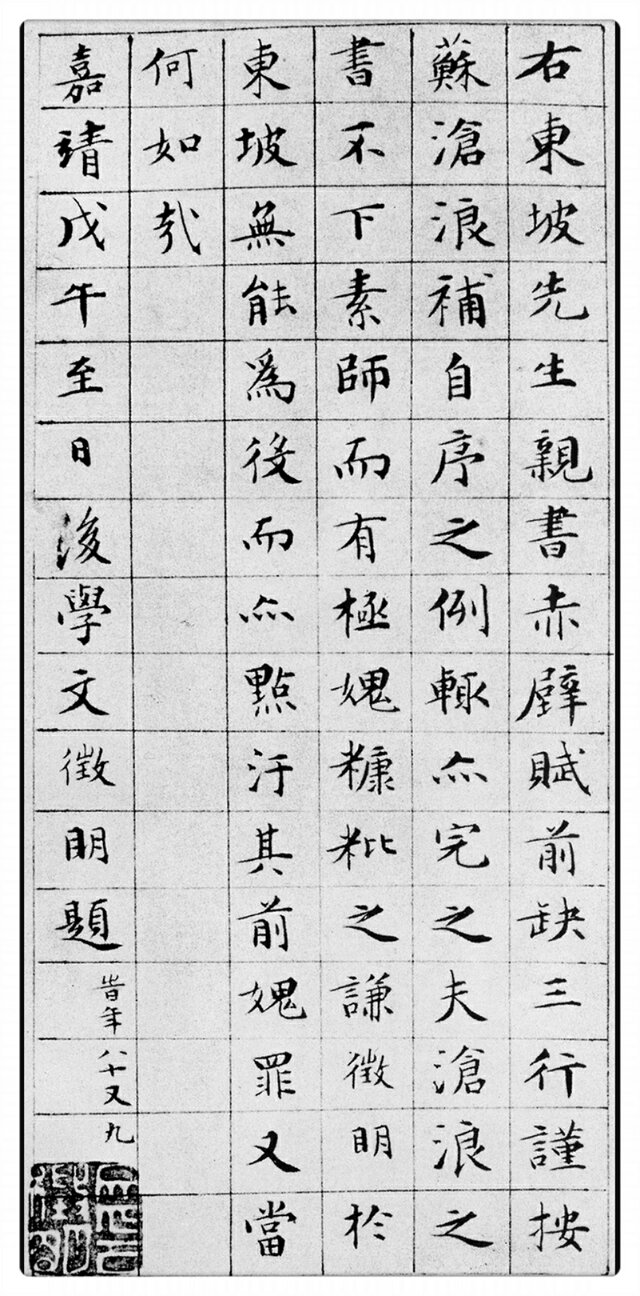 右東坡先生親書赤壁賦前缺三行謹按
蘇滄浪補自序之例輒亦完之夫滄浪之
書不下素師而有極媿糠粃之謙徵明於
東坡無能爲後而亦點汙其前媿罪又當
何如哉
嘉靖戊午至日後學文徵明題
旹年八十又九